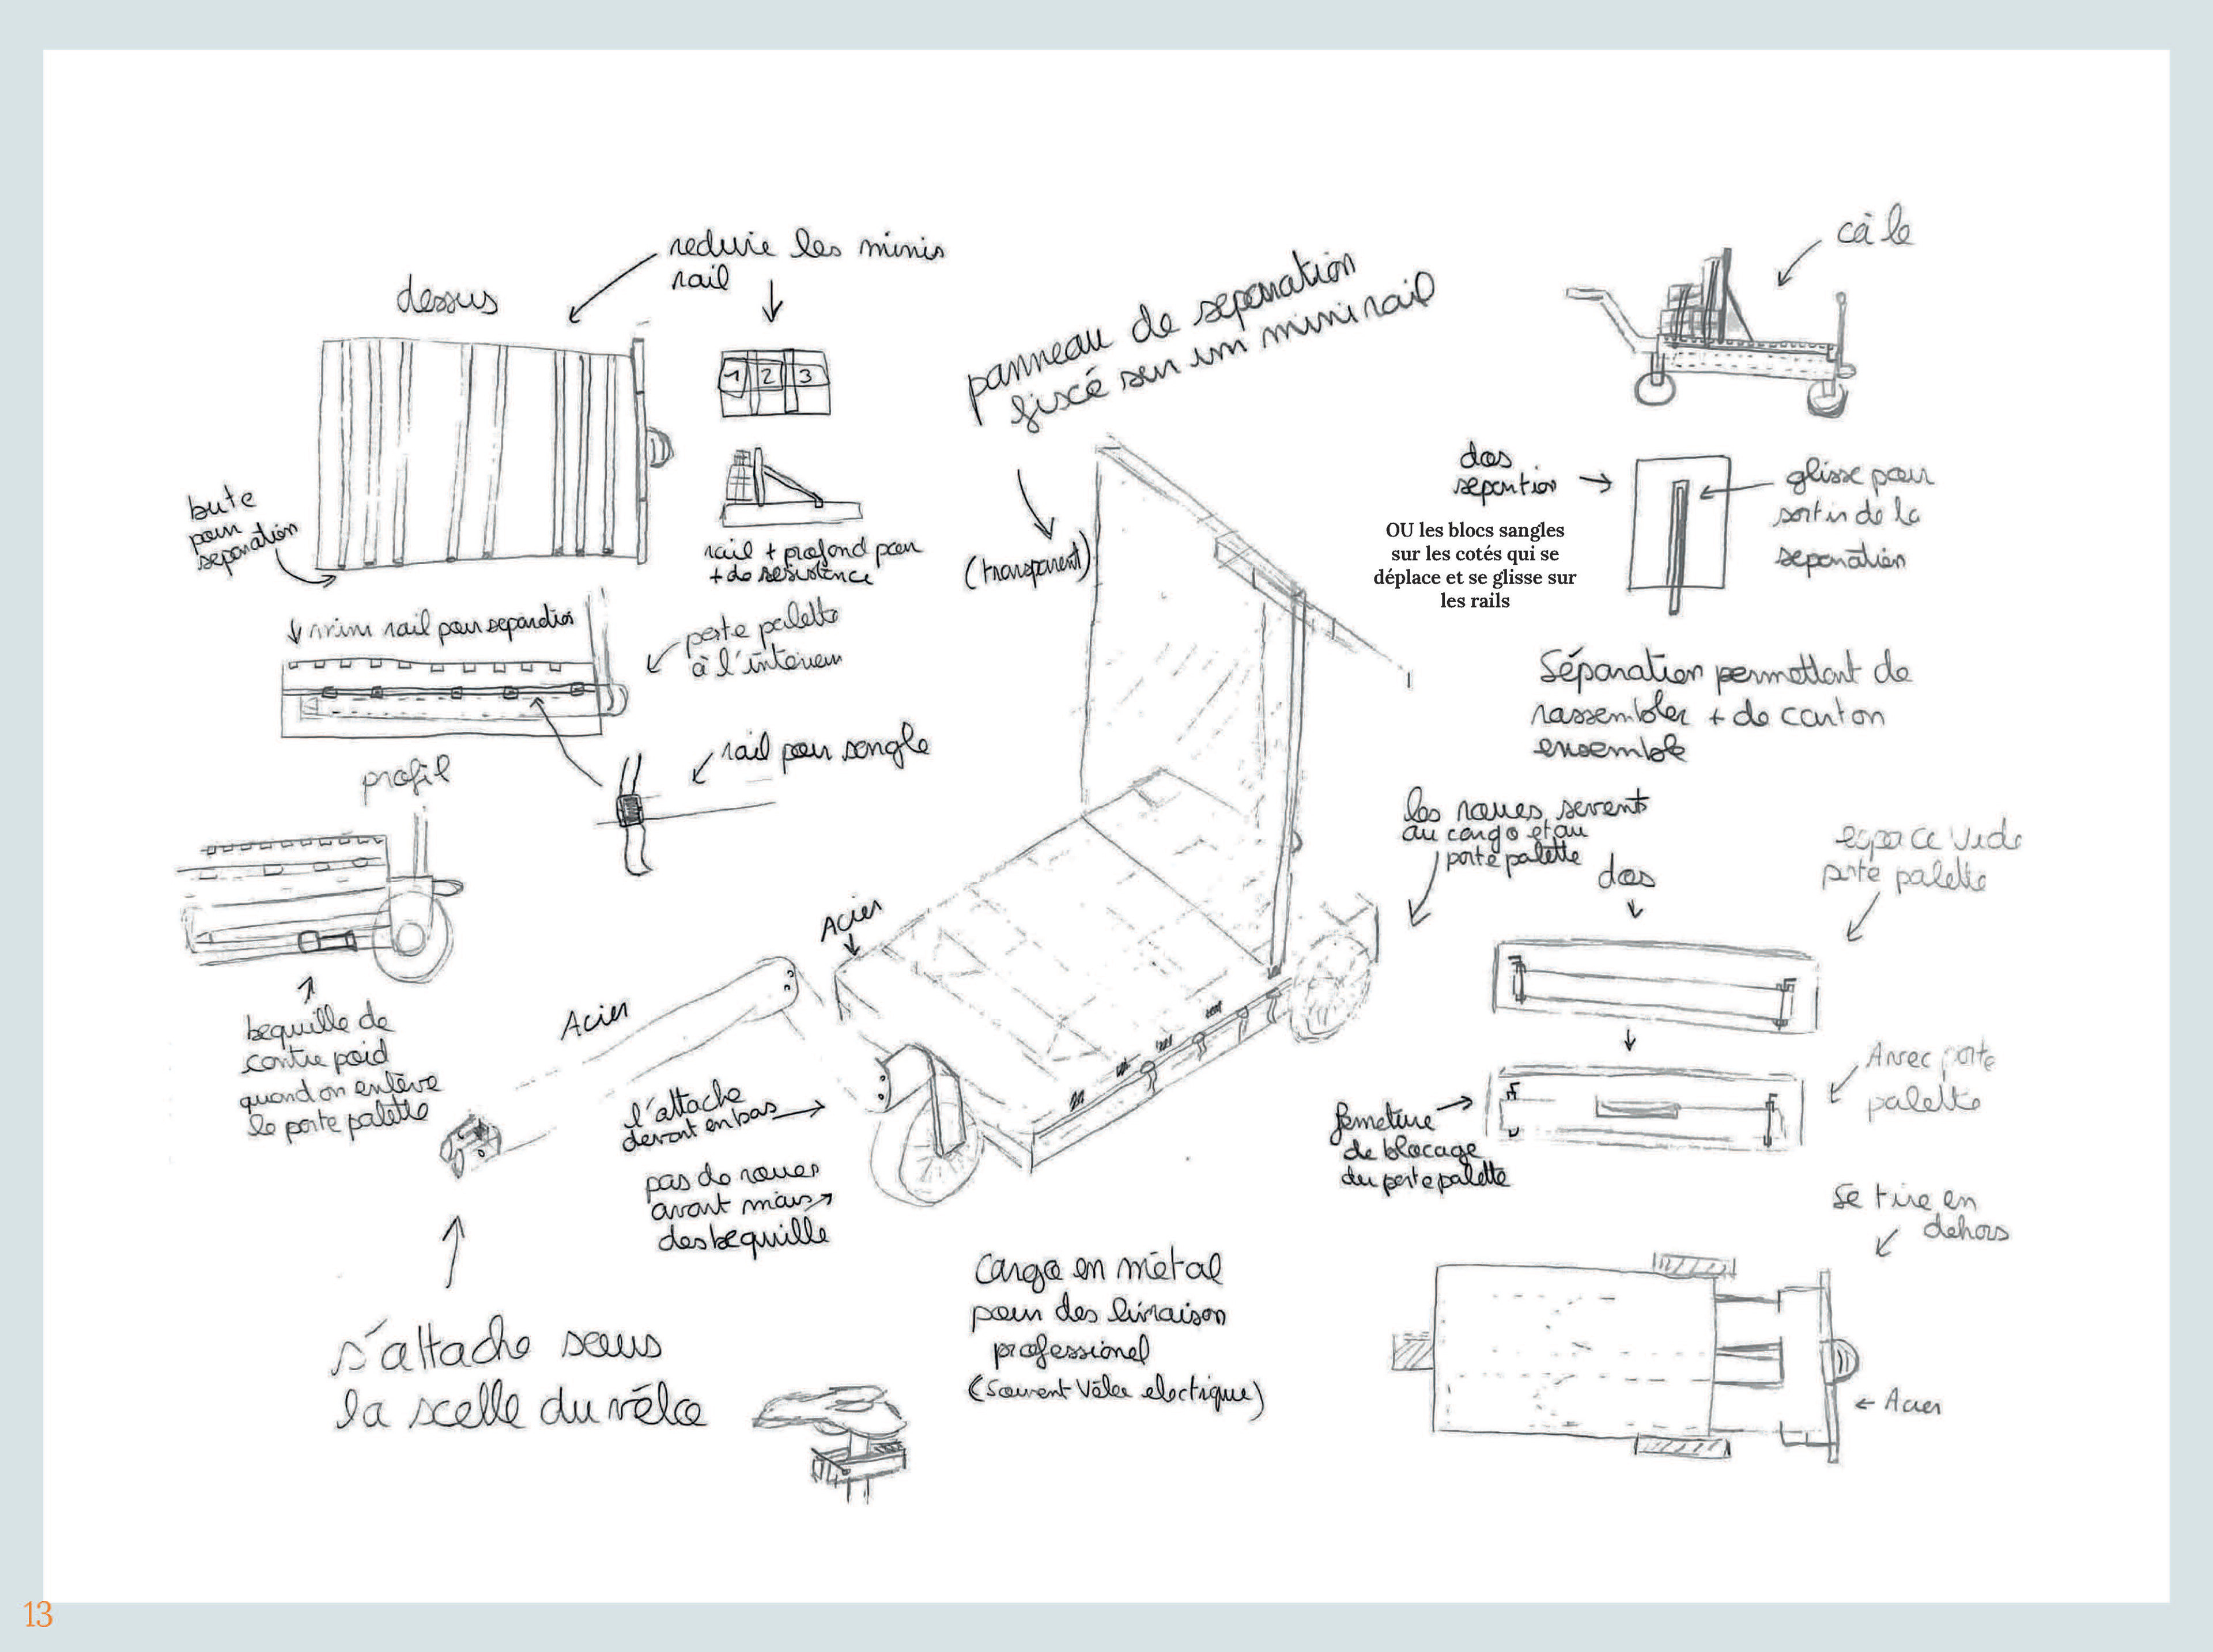 dessus
reduire les minis
rail
1 2 3
rail + profond pour
+ de resistence
bute
pour
separation
mini rail pour separation
porte palette
à l'interieur
profil
rail pour sangle
bequille de
contre poid
quand on enlève
le porte palette
Acier
s'attache sous
la scelle du vélo
l'attache
devant en bas
pas de roues
avant mais
des bequille
Acier
panneau de separation
fixcé sur un mini rail
(transparent)
Cargo en métal
pour des livraison
professionel
(souvent Vélo electrique)
câle
dos
separtion
glisse pour
sortir de la
separation
OU les blocs sangles
sur les cotés qui se
déplace et se glisse sur
les rails
Séparation permettant de
rassembler + de carton
ensemble
les roues servent
au cargo et au
porte palette
dos
espace vide
porte palette
Avec porte
palette
fermeture
de blocage
du porte palette
Se tire en
dehors
Acier
13